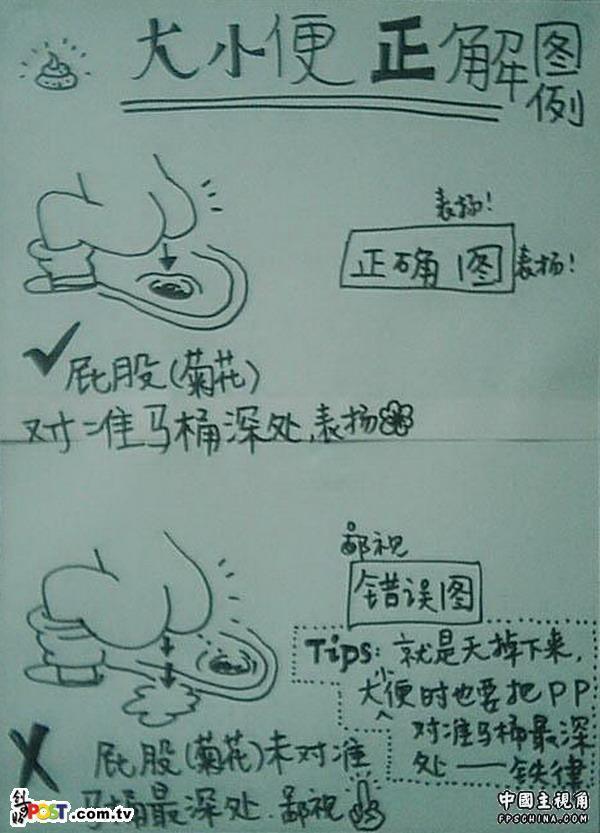 大小便正解图例
表扬!
正确图 表扬!
✓ 屁股(菊花)
对准马桶深处,表扬
鄙视
错误图
Tips: 就是天掉下来,
大小便时也要把PP
对准马桶最深
处——铁律
X 屁股(菊花)未对准
马桶最深处.鄙视
POST.com.tv
中國主視角
FPSCHINA.COM